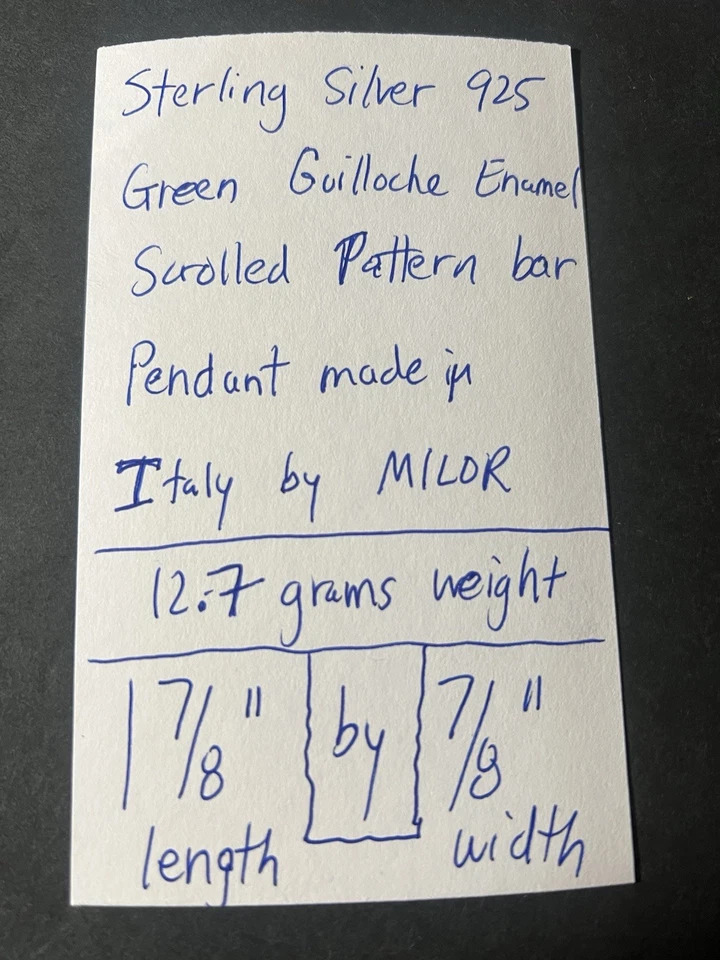 Sterling Silver 925
Green Guilloche Enamel
Scrolled Pattern bar
Pendant made in
Italy by MILOR
12.7 grams weight
1 7/8" by 7/8"
length width